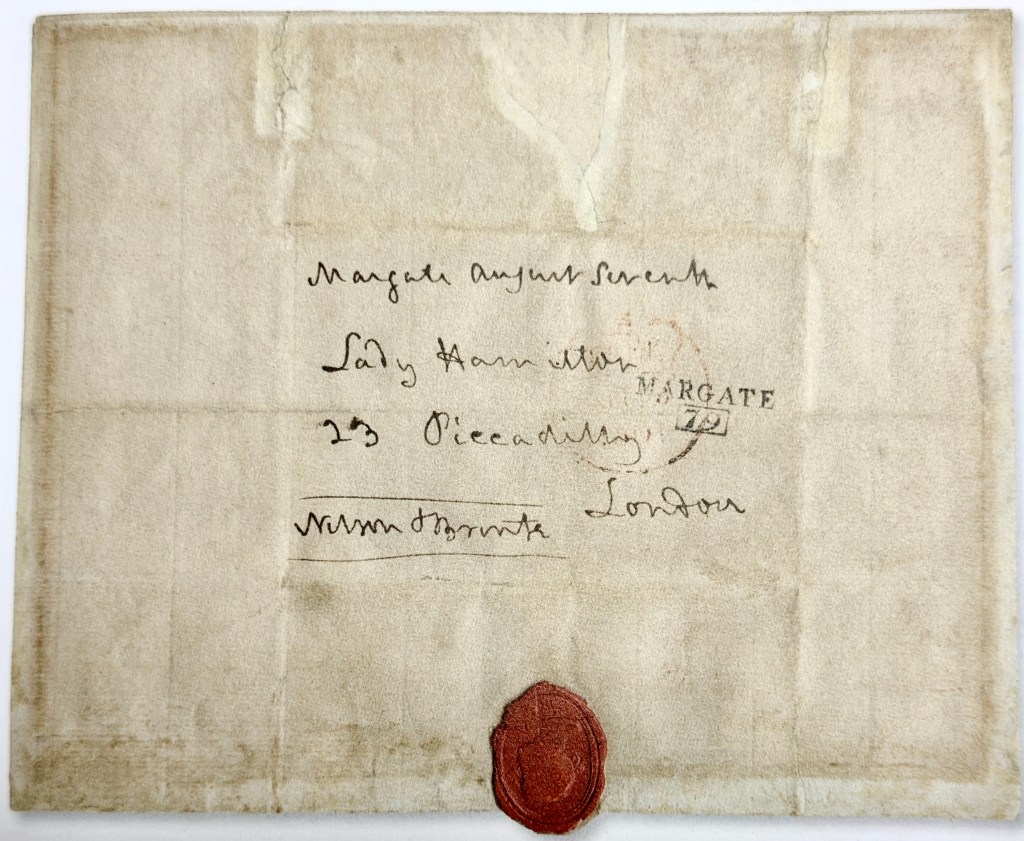 Margate August Seventh
Lady Hamilton
MARGATE
79
23 Piccadilly
London
Nelson & Bronte